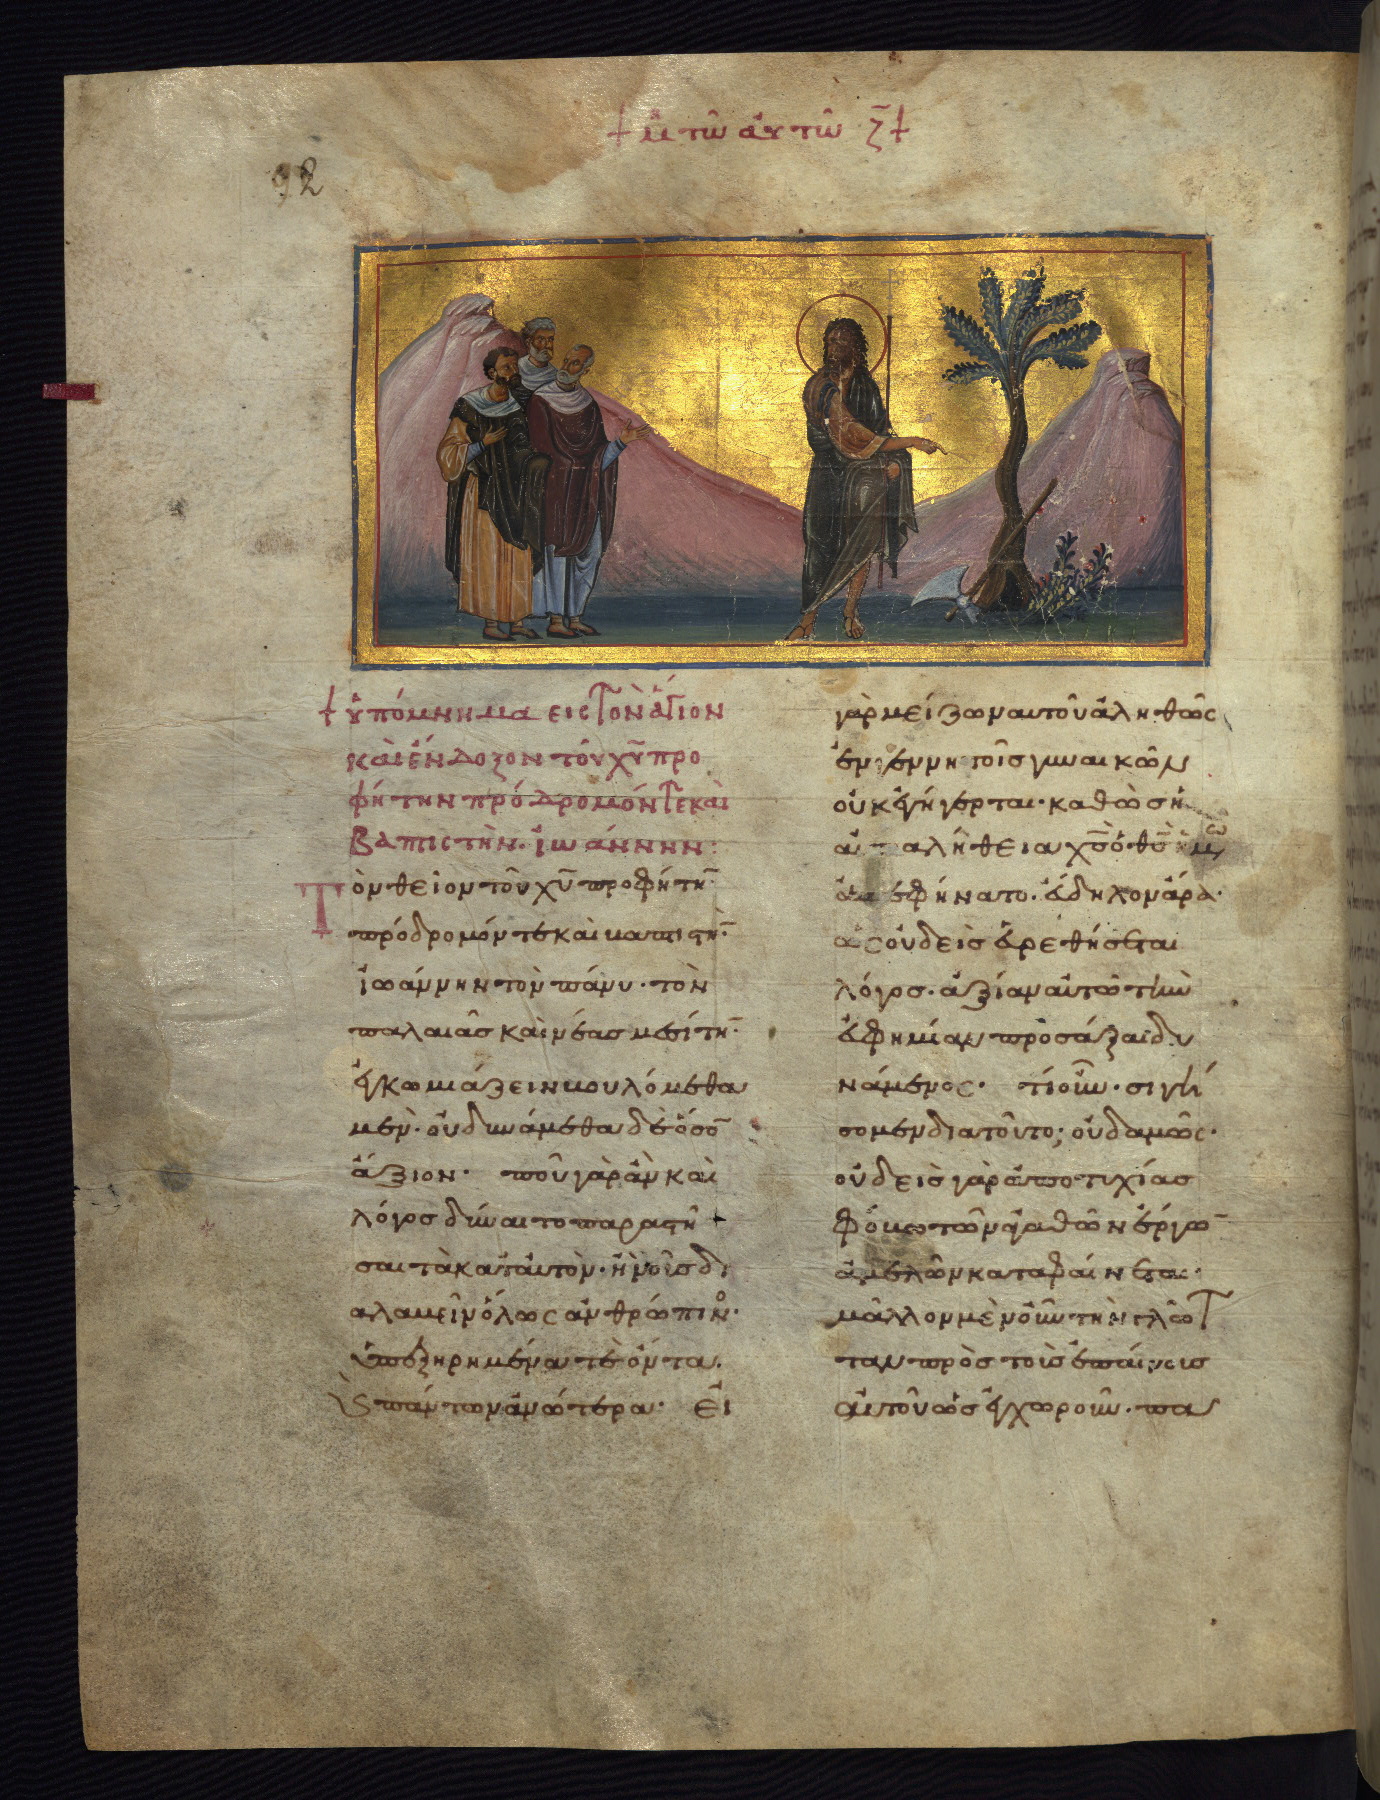 + μ τῶ αὐτῶ ζ̄ +
92
+ ὑπόμνημα εἰς τὸν ἅγιον
καὶ ἔνδοξον τοῦ χ̅υ̅ προ
φήτην πρόδρομόν τε καὶ
βαπτιστὴν. ἰωάννην:
Τὸν θεῖον τοῦ χ̅υ̅ προφήτη̅·
πρόδρομόν τε καὶ βαπτιστὴ̅·
ἰωάννην τὸν πάνυ· τὸν
παλαιᾶς καὶ νέας μεσίτη̅·
ἐγκωμιάζειν βουλόμεθα
μέν· οὐ δυνάμεθα δὲ ὅσο̅
ἄξιον· ποῦ γὰρ ἂν καὶ
λόγος δύναιτο παραστῆ
σαι τὰ κατ' αὐτὸν· ἢ νοῦς δι
αλαβεῖν ὅλως ἀνθρώπιν̊·
ὑπεξηρημένα τὲ ὄντα.
ϗ πάντων ἀνώτερα· εἰ
γὰρ μείζων αὐτοῦ ἀληθῶς
ἐν γεννητοῖς γυναικῶν
οὐκ ἐγήγερται· καθὼς ἡ
αὐ αλήθεια χ̅ς̅ ὁ θ̅ς̅ ἡμῶ
ἀπεφήνατο. ἄδηλον ἄρα·
ὡς οὐδεὶς εὑρεθήσεται
λόγος· ἀξίαν αὐτῶ τὴν
εὐφημίαν προσάξαι δυ
νάμενος· τί οὖν· σιγή
σομεν διατοῦτο; οὐδαμῶς·
οὐδεὶς γὰρ ἀποτυχίας
φόβω τῶν ἀγαθῶν ἔργω̅
ἀμελῶν καταφαίνεται·
μᾶλλον μὲν οὖν τὴν γλῶτ
ταν πρὸς τοῖς ἐπαίνοις
αὐτοῦ ὡς ἐγχωροῦν· πα